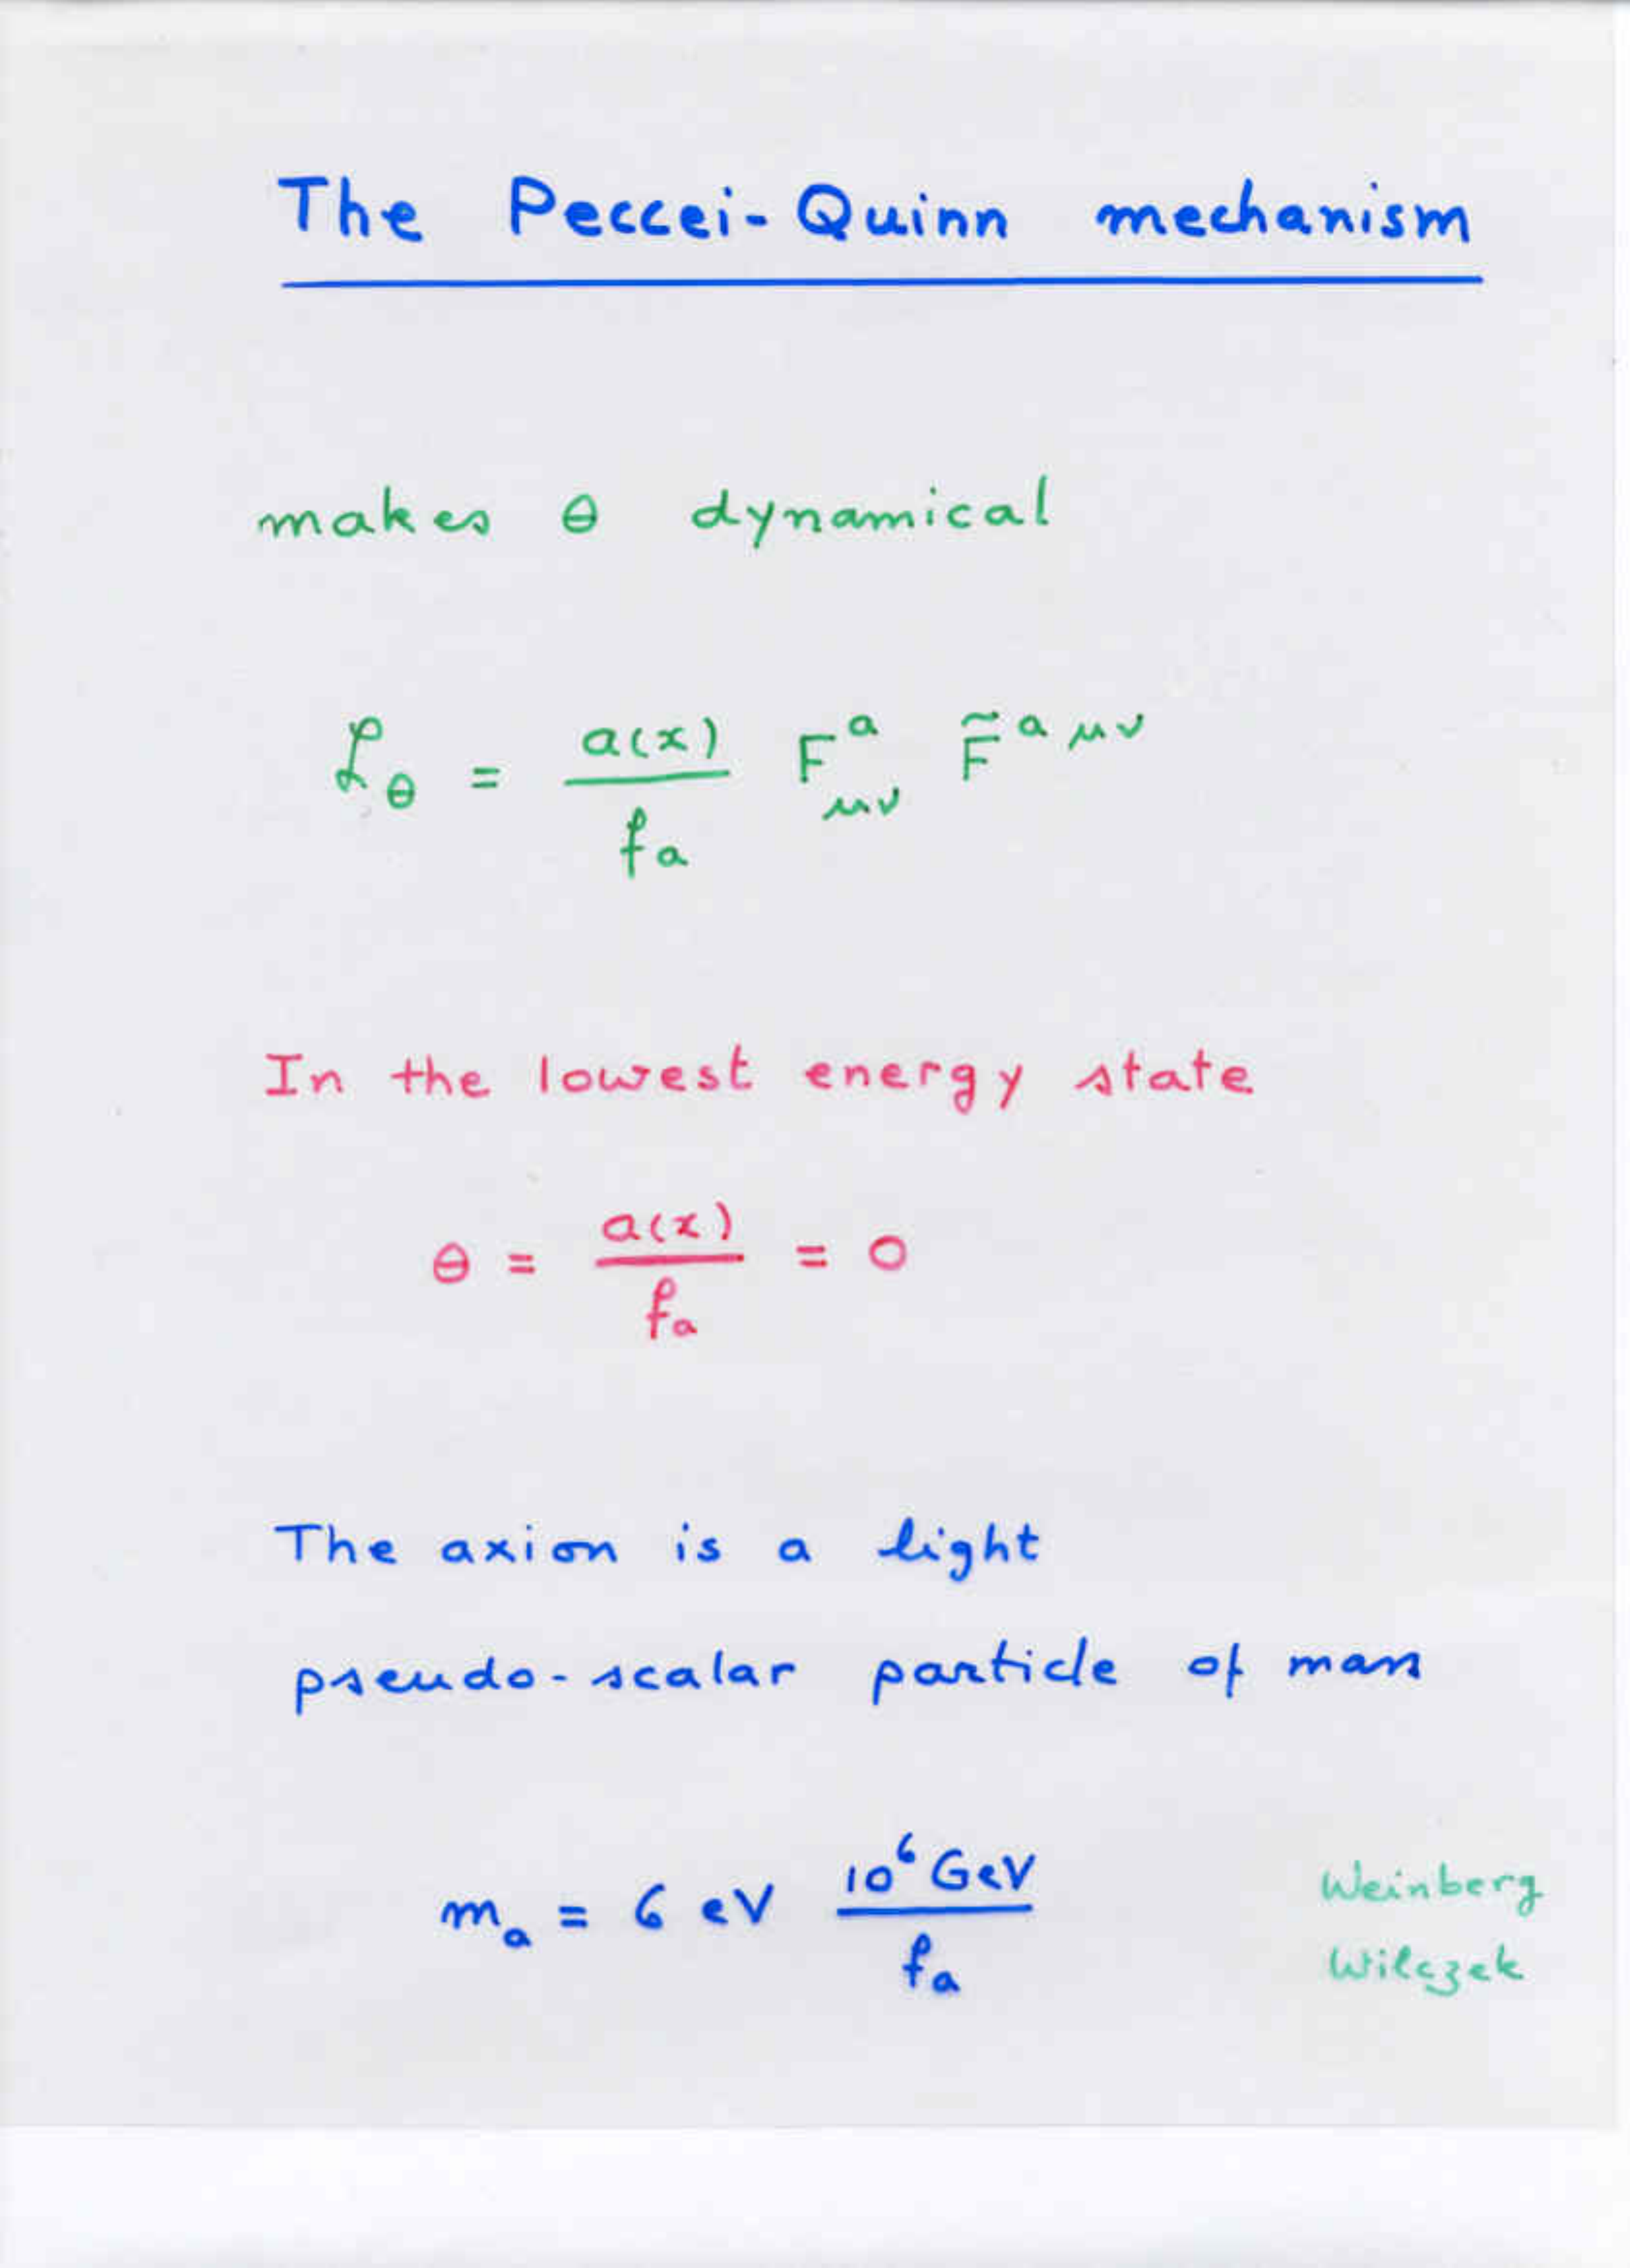 The Peccei-Quinn mechanism
makes θ dynamical
ℒ_θ = a(x)/f_a F^a_μν F̃^a μν
In the lowest energy state
θ = a(x)/f_a = 0
The axion is a light
pseudo-scalar particle of mass
m_a = 6 eV 10^6 GeV/f_a
Weinberg
Wilczek